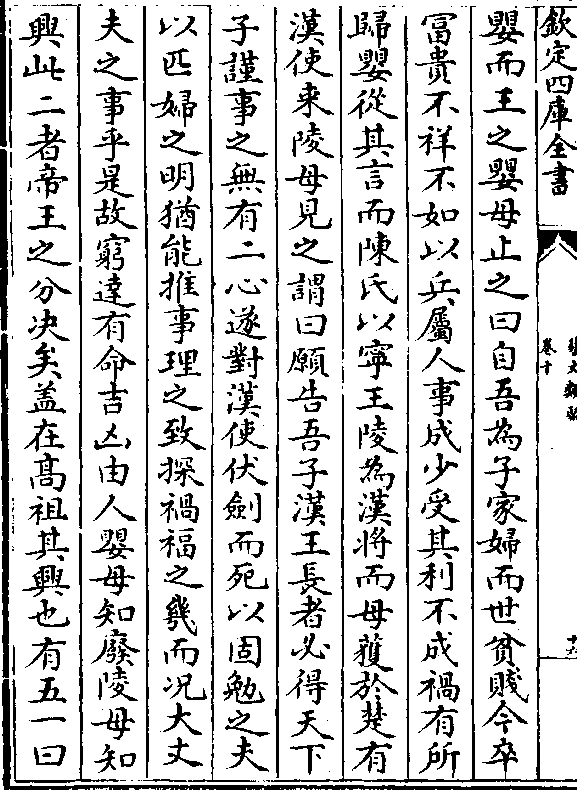 欽定四庫全書
卷十
嬰而王之嬰母止之曰自吾為子家婦而世貧賤今卒
富貴不祥不如以兵屬人事成少受其利不成禍有所
歸嬰從其言而陳氏以寧王陵為漢將而母獲於楚有
漢使来陵母見之謂曰願告吾子漢王長者必得天下
子謹事之無有二心遂對漢使伏劍而死以固勉之夫
以匹婦之明猶能推事理之致探禍福之幾而况大丈
夫之事乎是故窮達有命吉凶由人嬰母知廢陵母知
興此二者帝王之分决矣盖在髙祖其興也有五一曰